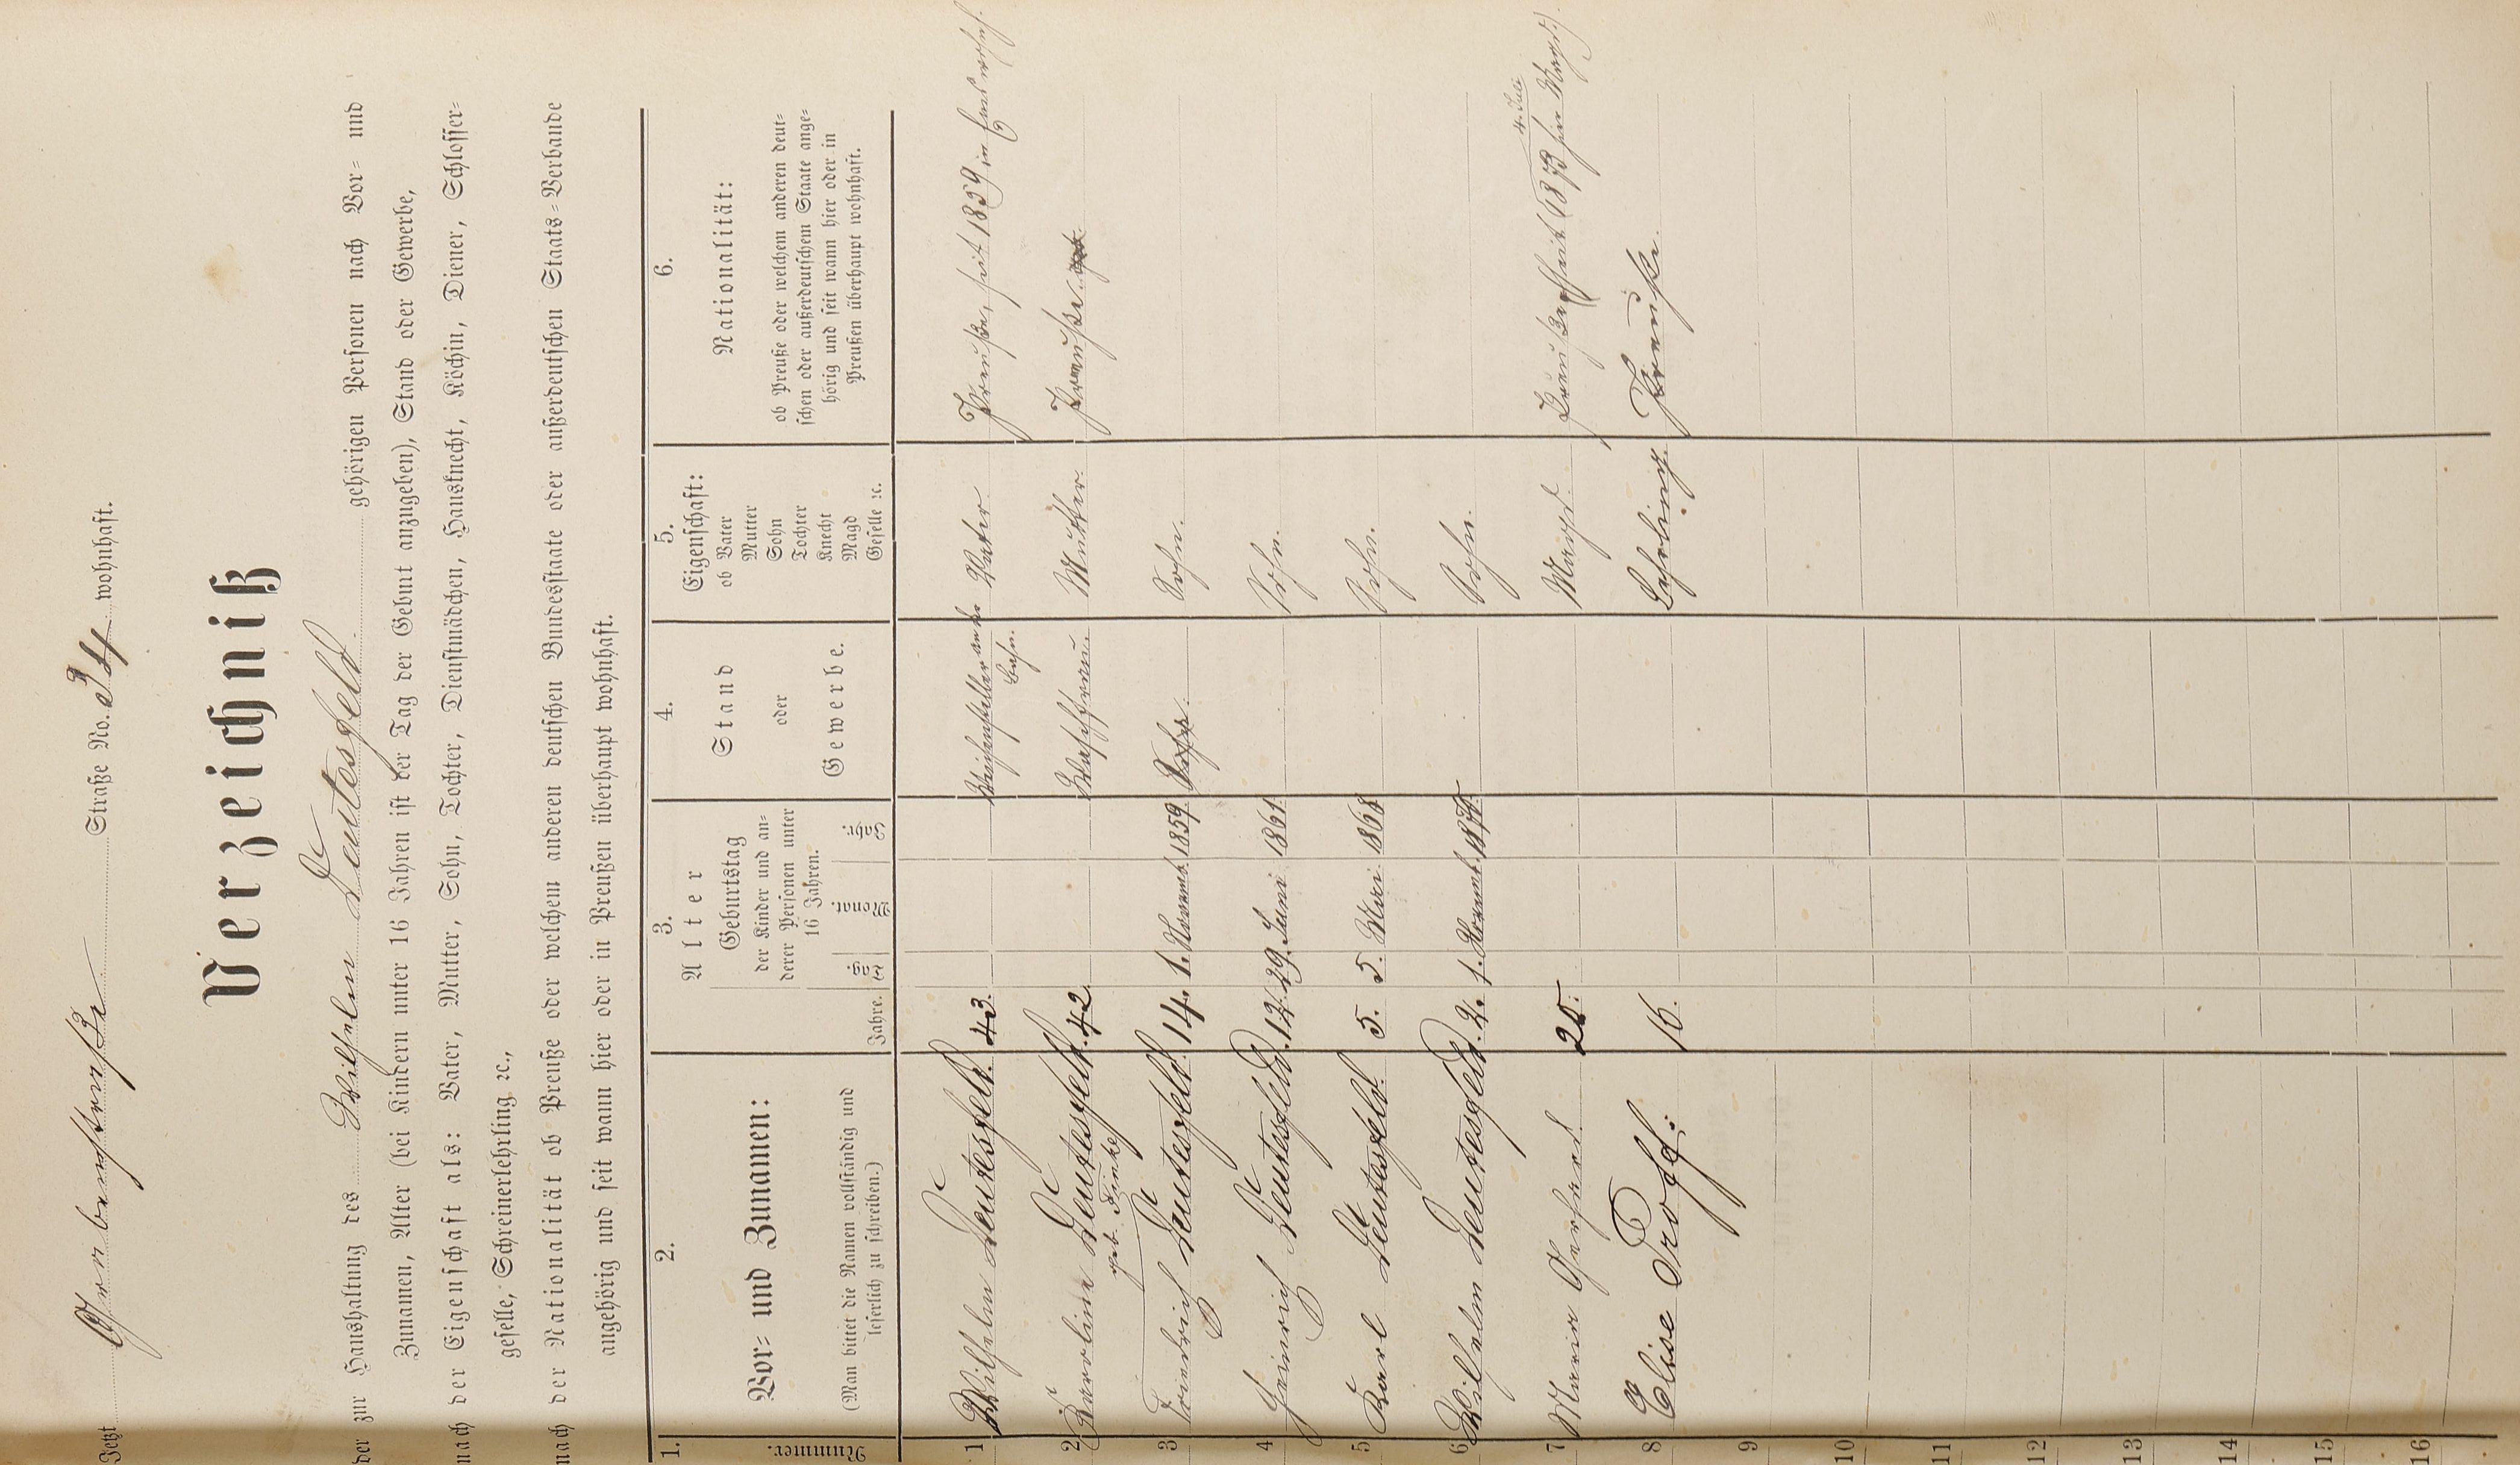 Jetzt Grabenstraße Straße No. 34 wohnhaft.
Verzeichniß
der zur Haushaltung des Wilhelm Deutesfeld gehörigen Personen nach Vor- und
Zunamen, Alter (bei Kindern unter 16 Jahren ist der Tag der Geburt anzugeben), Stand oder Gewerbe,
nach der Eigenschaft als: Vater, Mutter, Sohn, Tochter, Dienstmädchen, Hausknecht, Köchin, Diener, Schlosser-
geselle, Schreinerlehrling ꝛc.,
nach der Nationalität ob Preuße oder welchem anderen deutschen Bundesstaate oder außerdeutschen Staats-Verbande
angehörig und seit wann hier oder in Preußen überhaupt wohnhaft.
1. 2. 3. 4. 5. 6.
Nummer.
Vor- und Zunamen:
(Man bittet die Namen vollständig und
leserlich zu schreiben.)
Alter
Jahre.
Geburtstag
der Kinder und an-
derer Personen unter
16 Jahren.
Tag. Monat. Jahr.
Stand
oder
Gewerbe.
Eigenschaft:
ob Vater
Mutter
Sohn
Tochter
Knecht
Magd
Geselle ꝛc.
Nationalität:
ob Preuße oder welchem anderen deut-
schen oder außerdeutschem Staate ange-
hörig und seit wann hier oder in
Preußen überhaupt wohnhaft.
1 Wilhelm Deutesfeld. 43. Weichensteller an der Bahn. Vater Preuße, seit 1859 in Ems wohnh.
2 Karoline Deutesfeld. 42. Waschfrau. Mutter. Preuße.
geb.
3 Friedrich Deutesfeld. 14. 1. Novemb. 1859. Sohn.
4 Heinrich Deutesfeld. 12. 29. Juni 1861. Sohn.
5 Karl Deutesfeld. 5. 5. Mai 1868 Sohn.
6 Wilhelm Deutesfeld. 2. 1. Novemb. Sohn.
7 Maria Gerhard 20. Magd. Preuße seit 4. Juli 1873 hier Magd.
8 Elise Troff. 16. Lehrling. Preuße.
9
10
11
12
13
14
15
16